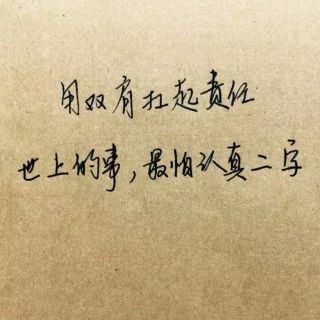 用双肩扛起责任
世上的事，最怕认真二字